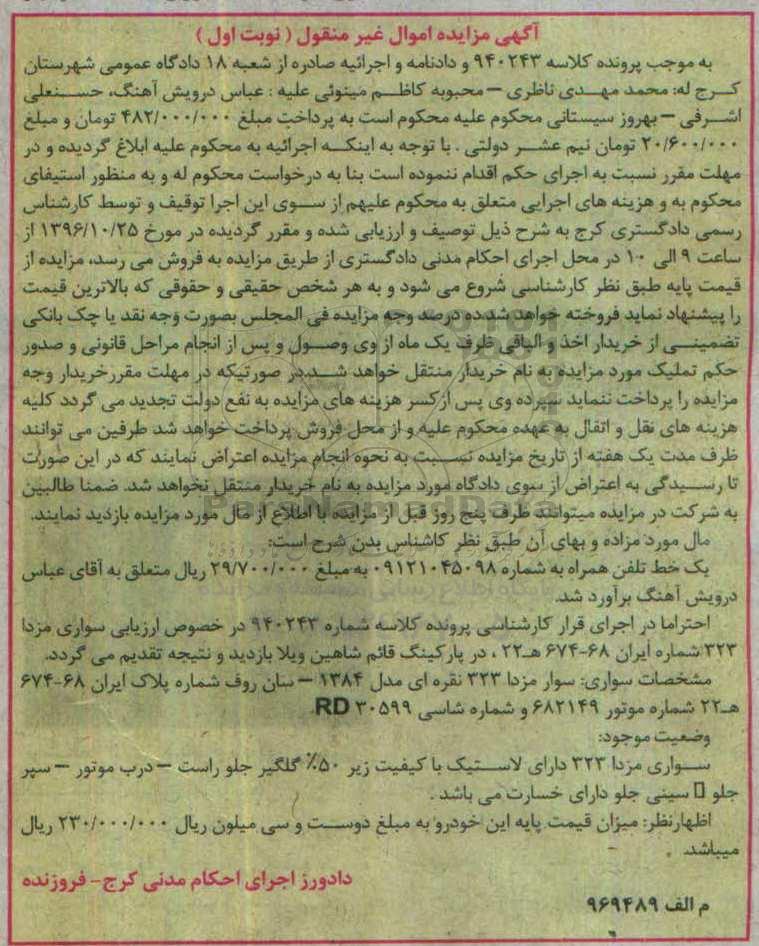 آگهی مزایده اموال غیر منقول ( نوبت اول )
به موجب پرونده کلاسه ۹۴۰۲۴۳ و دادنامه و اجرائیه صادره از شعبه ۱۸ دادگاه عمومی شهرستان
کرج له: محمد مهدی ناظری – محبوبه کاظم مینوئی علیه : عباس درویش آهنگ، حسنعلی
اشرفی – بهروز سیستانی محکوم علیه محکوم است به پرداخت مبلغ ۴۸۲/۰۰۰/۰۰۰ تومان و مبلغ
۲۰/۶۰۰/۰۰۰ تومان نیم عشر دولتی . با توجه به اینکه اجرائیه به محکوم علیه ابلاغ گردیده و در
مهلت مقرر نسبت به اجرای حکم اقدام ننموده است بنا به درخواست محکوم له و به منظور استیفای
محکوم به و هزینه های اجرایی متعلق به محکوم علیهم از سوی این اجرا توقیف و توسط کارشناس
رسمی دادگستری کرج به شرح ذیل توصیف و ارزیابی شده و مقرر گردیده در مورخ ۱۳۹۶/۱۰/۲۵ از
ساعت ۹ الی ۱۰ در محل اجرای احکام مدنی دادگستری از طریق مزایده به فروش می رسد، مزایده از
قیمت پایه طبق نظر کارشناسی شروع می شود و به هر شخص حقیقی و حقوقی که بالاترین قیمت
را پیشنهاد نماید فروخته خواهد شد.ده درصد وجه مزایده فی المجلس بصورت وجه نقد یا چک بانکی
تضمینی از خریدار اخذ و الباقی ظرف یک ماه از وی وصول و پس از انجام مراحل قانونی و صدور
حکم تملیک مورد مزایده به نام خریدار منتقل خواهد شد.در صورتیکه در مهلت مقررخریدار وجه
مزایده را پرداخت ننماید سپرده وی پس ازکسر هزینه های مزایده به نفع دولت تجدید می گردد کلیه
هزینه های نقل و اتقال به عهده محکوم علیه و از محل فروش پرداخت خواهد شد طرفین می توانند
ظرف مدت یک هفته از تاریخ مزایده نسبت به نحوه انجام مزایده اعتراض نمایند که در این صورت
تا رسیدگی به اعتراض از سوی دادگاه مورد مزایده به نام خریدار منتقل نخواهد شد. ضمنا طالبین
به شرکت در مزایده میتوانند ظرف پنج روز قبل از مزایده با اطلاع از مال مورد مزایده بازدید نمایند.
مال مورد مزاده و بهای آن طبق نظر کاشناس بدن شرح است:
یک خط تلفن همراه به شماره ۰۹۱۲۱۰۴۵۰۹۸ به مبلغ ۲۹/۷۰۰/۰۰۰ ریال متعلق به آقای عباس
درویش آهنگ برآورد شد.
احتراما در اجرای قرار کارشناسی پرونده کلاسه شماره ۹۴۰۲۴۳ در خصوص ارزیابی سواری مزدا
۳۲۳ شماره ایران ۶۸-۶۷۴ هـ۲۲ ، در پارکینگ قائم شاهین ویلا بازدید و نتیجه تقدیم می گردد.
مشخصات سواری: سوار مزدا ۳۲۳ نقره ای مدل ۱۳۸۴ – سان روف شماره پلاک ایران ۶۸-۶۷۴
هـ۲۲ شماره موتور ۶۸۲۱۴۹ و شماره شاسی RD ۳۰۵۹۹.
وضعیت موجود:
سواری مزدا ۳۲۳ دارای لاستیک با کیفیت زیر ۵۰٪ گلگیر جلو راست – درب موتور – سپر
جلو سینی جلو دارای خسارت می باشد .
اظهارنظر: میزان قیمت پایه این خودرو به مبلغ دوست و سی میلون ریال ۲۳۰/۰۰۰/۰۰۰ ریال
میباشد.
دادورز اجرای احکام مدنی کرج- فروزنده
م الف ۹۶۹۴۸۹